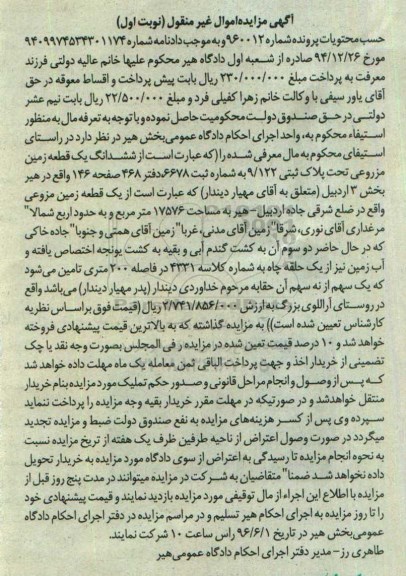 آگهی مزایده اموال غیر منقول (نوبت اول)
حسب محتویات پرونده شماره ۹۶۰۰۱۲ و به موجب دادنامه شماره ۹۴۰۹۹۷۴۵۳۴۳۰۱۱۷۴
مورخ ۹۴/۱۲/۲۶ صادره از شعبه اول دادگاه هیر محکوم علیها خانم عالیه دولتی فرزند
معرفت به پرداخت مبلغ ۲۳۰/۰۰۰/۰۰۰ ریال بابت پیش پرداخت و اقساط معوقه در حق
آقای یاور سیفی با وکالت خانم زهرا کفیلی فرد و مبلغ ۲۲/۵۰۰/۰۰۰ ریال بابت نیم عشر
دولتی در حق صندوق دولت محکومیت حاصل نموده و با توجه به تعرفه مال به منظور
استیفاء محکوم به، واحد اجرای احکام دادگاه عمومی بخش هیر در نظر دارد در راستای
استیفای محکوم به مال معرفی شده را (که عبارت است از ششدانگ یک قطعه زمین
مزروعی تحت پلاک ثبتی ۹/۱۲۲ به شماره ثبت ۶۶۷۸، دفتر ۴۶۸ صفحه ۱۴۶ واقع در هیر
بخش ۳ اردبیل (متعلق به آقای مهیار دیندار) که عبارت است از یک قطعه زمین مزوعی
واقع در ضلع شرقی جاده اردبیل - هیر به مساحت ۱۷۵۷۶ متر مربع و به حدود اربع شمالا"
مرغداری آقای نوری، شرقا" زمین آقای مدنی، غربا" زمین آقای همتی و جنوبا" جاده خاکی
که در حال حاضر دو سوم آن به کشت گندم آبی و بقیه به کشت یونجه اختصاص یافته و
آب زمین نیز از یک حلقه چاه به شماره کلاسه ۴۳۳۱ در فاصله ۲۰۰ متری تامین می شود
که یک سهم از نه سهم آن حقابه مرحوم خداوردی دیندار (پدر مهیار دیندار) می باشد واقع
در روستای آراللوی بزرگ به ارزش ۲/۷۴۱/۸۵۶/۰۰۰ ریال (قیمت فوق بر اساس نظریه
کارشناس تعیین شده است)) به مزایده گذاشته که به بالاترین قیمت پیشنهادی فروخته
خواهد شد و ۱۰ درصد قیمت تعین شده در مزایده ر فی المجلس بصورت وجه نقد یا چک
تضمینی از خریدار اخذ و جهت پرداخت الباقی ثمن معامله یک ماه مهلت داده خواهد شد
که پس از وصول و انجام مراحل قانونی و صدور حکم تملیک مورد مزایده بنام خریدار
منتقل خواهد شد و در صورتیکه در مهلت مقرر خریدار بقیه وجه مزایده را پرداخت ننماید
سپرده وی پس از کسر هزینه های مزایده به نفع صندوق دولت ضبط و مزایده تجدید
میگردد در صورت وصول اعتراض از ناحیه طرفین ظرف یک هفته از تریخ مزایده نسبت
به نحوه انجام مزایده تا رسیدگی به اعتراض از سوی دادگاه مورد مزایده به خریدار تحویل
داده نخواهد شد ضمنا" متقاضیان به شرکت در مزایده میتوانند در مدت پنج روز قبل از
مزایده با اطلاع این اجراء از مال توقیفی مورد مزایده بازدید نمایند و قیمت پیشنهادی خود
را تا روز مزایده به اجرای احکام هیر تسلیم و در مراسم مزایده در دفتر اجرای احکام دادگاه
عمومی بخش هیر در تاریخ ۹۶/۶/۱ راس ساعت ۱۰ شرکت نمایند.
طاهری رز - مدیر دفتر اجرای احکام دادگاه عمومی هیر